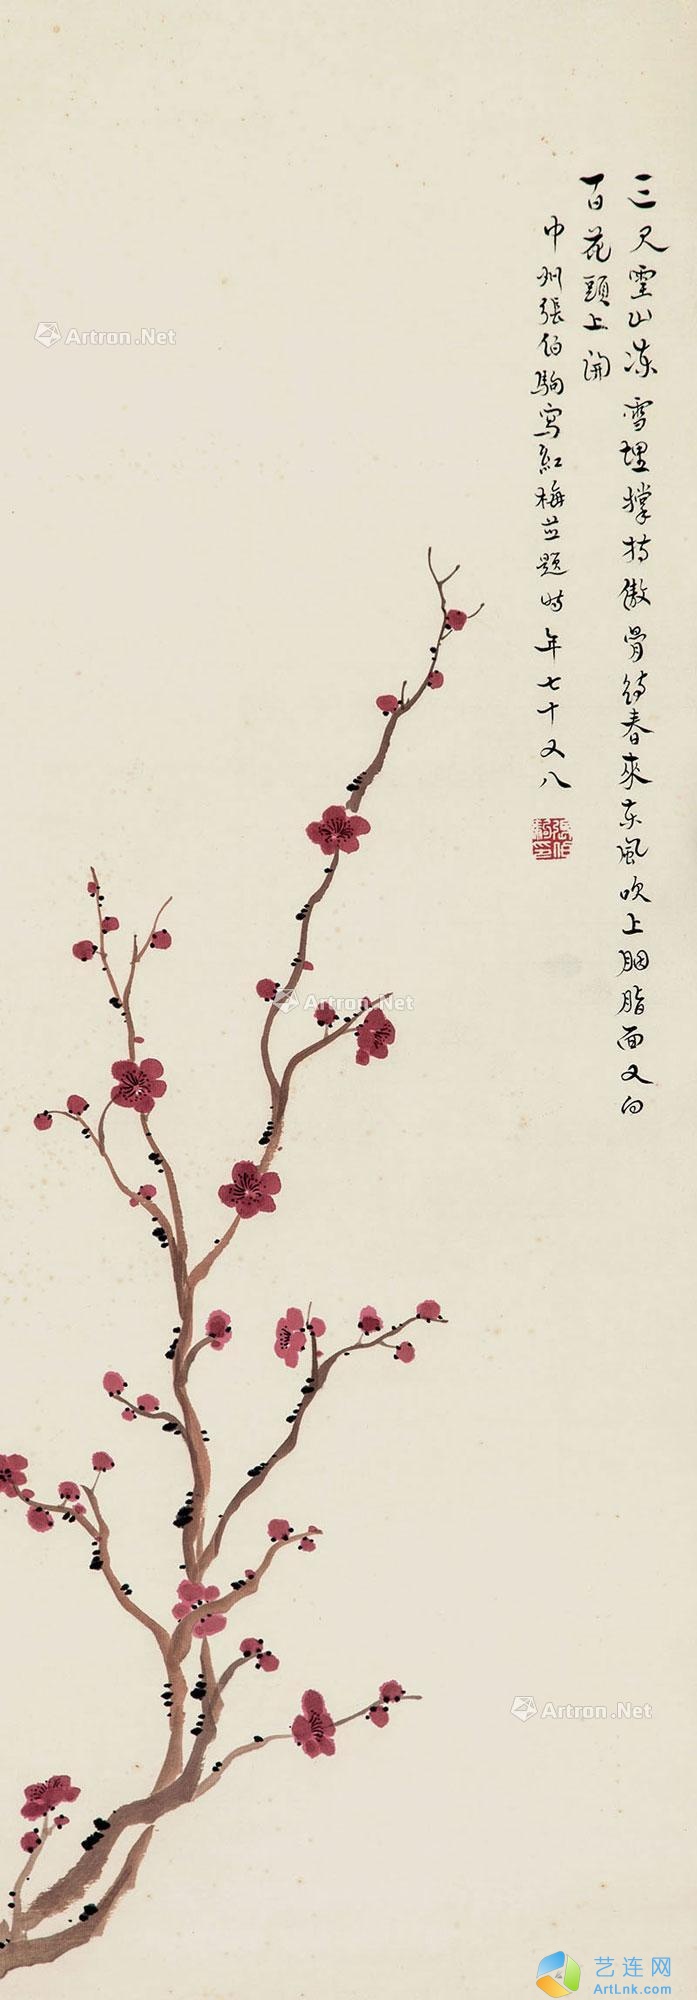 三尺靈山凍雪埋撐持傲骨待春來東風吹上胭脂面又向
百花頭上開
中州張伯駒寫紅梅並題時年七十又八
張伯駒印
Artron.Net
Artron.Net
Artron.Net
艺连网
ArtLnk.com